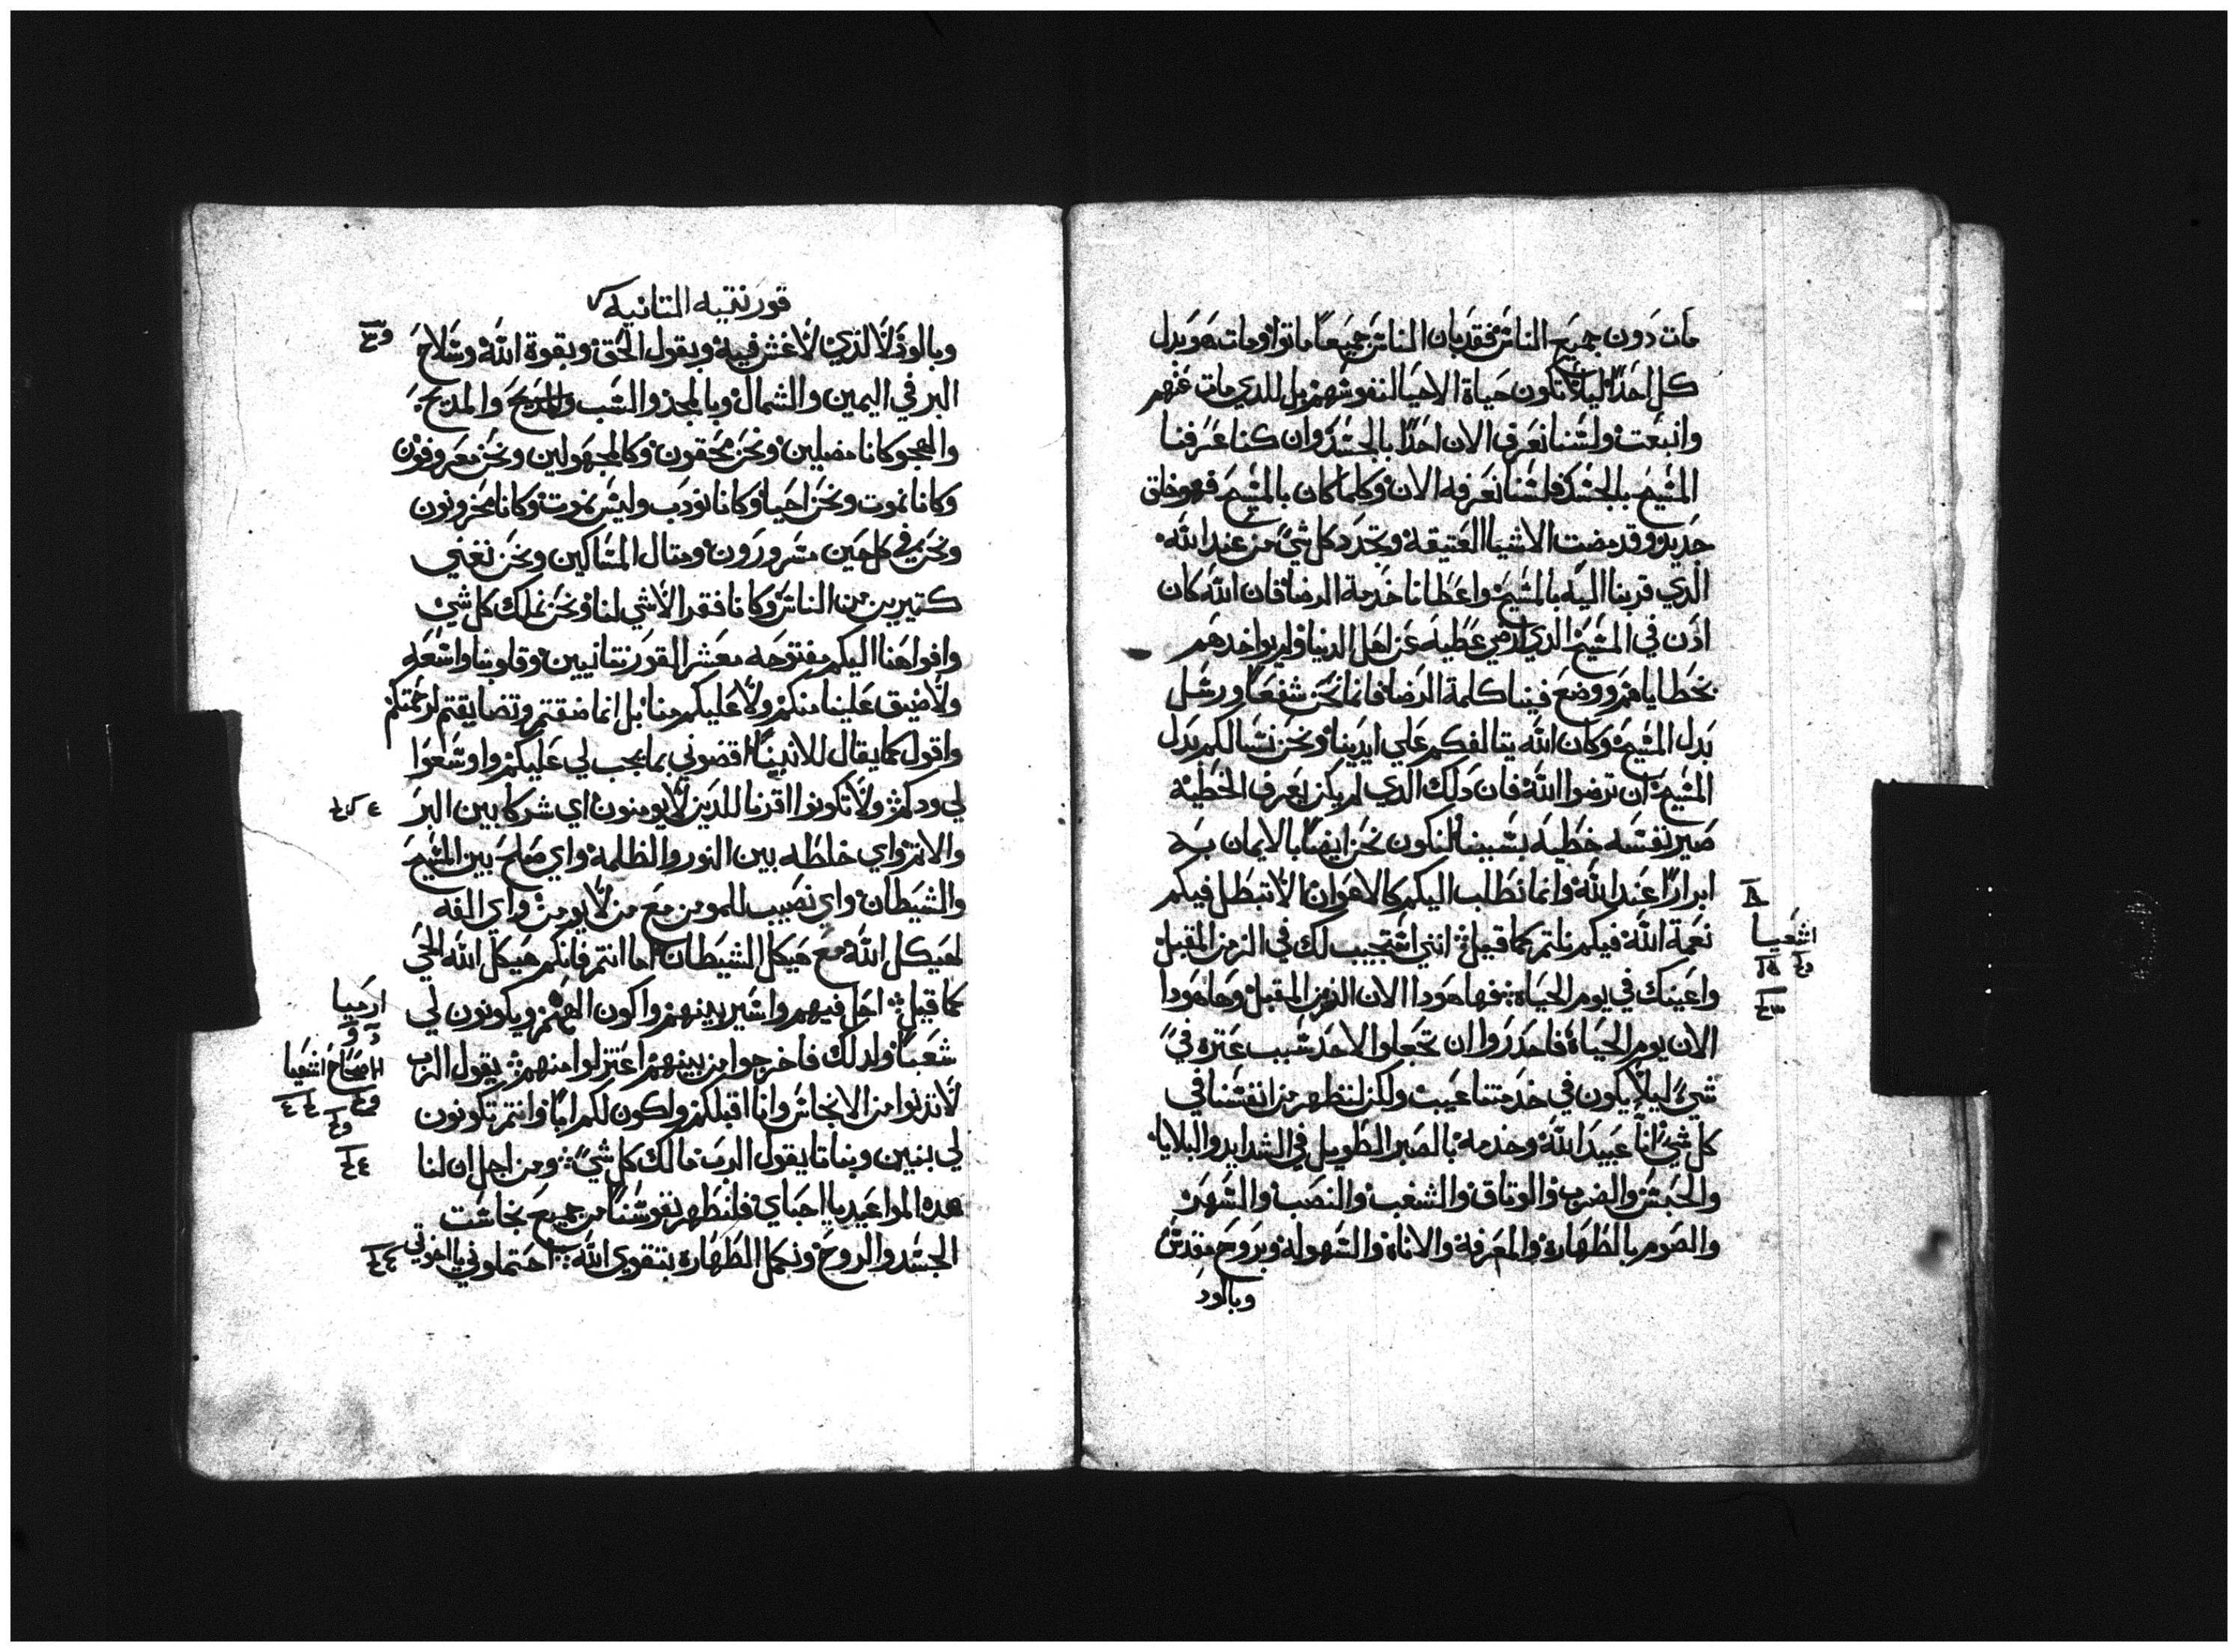 مات دون جميع الناس فقد بان الناس جميعا ماتوا ومات هو بدل
كل احدا ليلا تكون حياة الاحيا لنفوسهم بل للدي مات عنهم
وانبعت ولسنا نعرف الان احدا بالجسد وان كنا عرفنا
المسيح بالجسد فلسنا نعرفه الان وكلما كان بالمسيح فهو خلق
جديد وقد مضت الاشيا العتيقة وتجدد كل شي من عند الله
الدي قربنا اليه بالمسيح واعطانا خدمة الرضا فان الله كان
ادن في المسيح الدي ارضي عطيه عن اهل الدنيا ولم يواخدهم
بخطاياهم ووضع فينا كلمة الرضا فانما نحن شفعا ورسل
بدل المسيح وكان الله يتالفكم علي ايدينا ونحن نسالكم بدل
المسيح ان ترضوا الله فان دلك الدي لم يكن يعرف الخطية
صير نفسه خطيه بسببنا لنكون نحن ايضا بالايمان به
ابرارا عند الله وانما نطلب اليكم كالاعوان الا تبطل فيكم
نعمة الله فيكم نلتم كما قيل انني استجيب لك في الزمن المقبل
واعينك في يوم الحياة فها هودا الان الزمن المقبل وها هودا
الان يوم الحياة فاحدروا ان تجعلوا لاحد سبب عترة في
شي ليلا يكون في خدمتنا عيب ولكن لنظهر من انفسنا في
كل شي انا عبيد الله وخدمه بالصبر الطويل في الشدايد والبلايا
والحبس والضرب والوتاق والشغب والنصب والسهر
والصوم بالطهارة والمعرفة والاناة والسهولة وبروح مقدس
وبالود
اشعيا
قورنتيه التانيه
وبالود الدي لا غش فيه وبقول الحق وبقوة الله وسلاح
البر في اليمين والشمال وبالمجد والسب والمديح
والهجو كانا مضلين ونحن محقون وكالمجهولين ونحن معروفون
وكانا نموت ونحن احيا وكانا نودب وليس نموت وكانا محزونون
ونحن في كل حين مسرورون ومتال المساكين ونحن نغني
كتيرين من الناس وكانا فقرا لا شي لنا ونحن نملك كل شي
وافواهنا اليكم مفتوحه معشر القورنتانيين وقلوبنا واسعه
ولا ضيق علينا منكم ولا عليكم منا بل انما ضقتم وتضايقتم لرحمتكم
واقول كما يقال للابنا اقضوني بما يجب لي عليكم واوسعوا
لي ودكم ولا تكونوا اقرنا للدين لا يومنون اي شركا بين البر
والاتم واي خلطه بين النور والظلمة واي صلح بين المسيح
والشيطان واي نصيب للمومن مع من لا يومن واي الفه
لهيكل الله مع هيكل الشيطان اما انتم فانكم هيكل الله الحي
كما قيل احل فيهم واسير بينهم واكون الههم ويكونون لي
شعبا ولدلك فاخرجوا من بينهم اعتزلوا منهم يقول الرب
لا تدنوا من الانجاس وانا اقبلكم واكون لكم ابا وانتم تكونون
لي بنين وبناتا يقول الرب مالك كل شي ومن اجل ان لنا
هده المواعيد يا احباي فلنطهر نفوسنا من جميع نجاست
الجسد والروح ونكمل الطهاره بتقوي الله احتملوني يا اخوتي
ارميا
اشعيا